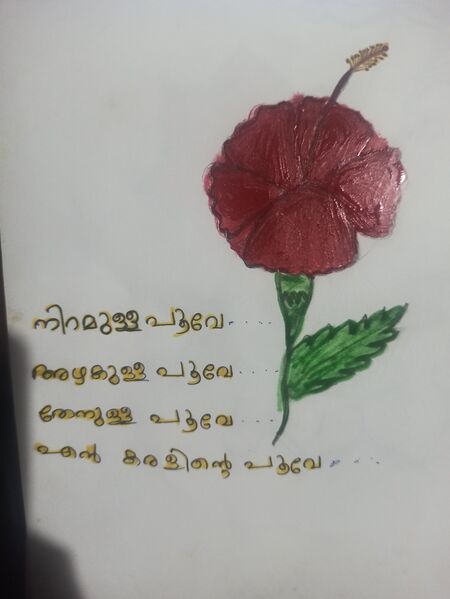 നിറമുള്ള പൂവേ.....
അഴകുള്ള പൂവേ.....
തേനുള്ള പൂവേ.....
എൻ കരളിന്റെ പൂവേ.....